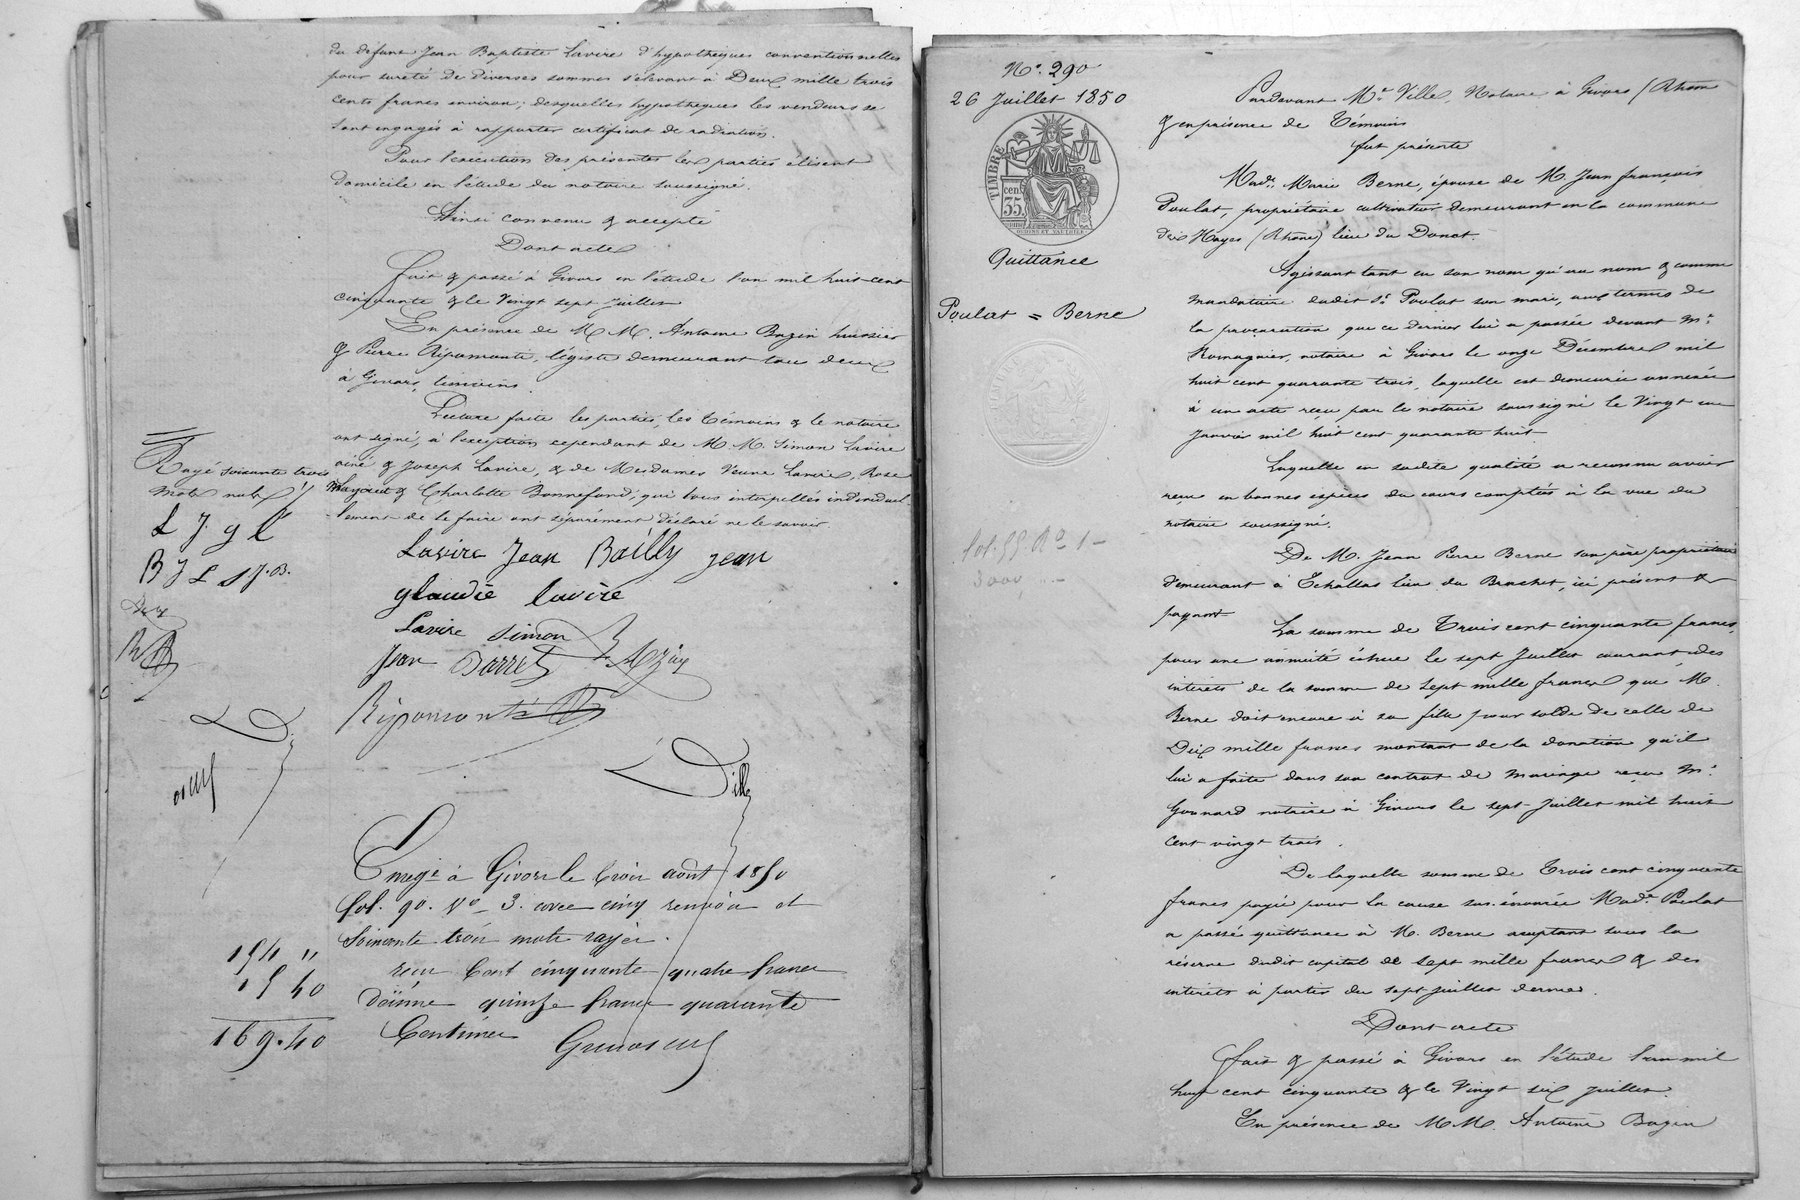 du défunt Jean Baptiste Lavire d'hypothèques conventionnelles
pour sureté de diverses sommes s'élevant à Deux mille trois
cents francs environ; desquelles hypothèques les vendeurs se
sont engagés à rapporter certificat de radiation.
Pour l'exécution des présentes les parties élisent
domicile en l'étude du notaire soussigné.
Ainsi convenu & accepté
Dont acte
Fait & passé à Givors en l'étude l'an mil huit cent
cinquante & le Vingt sept Juillet
En présence de M M. Antoine Bazin huissier
& Pierre Ripamonti, légiste demeurant tous deux
à Givors, témoins.
Lecture faite les parties, les témoins & le notaire
ont signé, à l'exception cependant de M. M. Simon Lavire
ainé & Joseph Lavire, & de Mesdames Veuve Lavire, Rose
& Charlotte Bonnefond, qui tous interpellés individuel-
lement de le faire ont séparément déclaré ne le savoir.
Rayé soixante trois
mots nuls
L J. g l
B J L S J. B.
Lavire Jean Bailly jean
glaudie lavire
Lavire Simon
Jean Barret Bazin
Ripamonti
Ville
Enregé à Givors le trois août 1850
fol. 90. Vo 3. avec cinq renvois et
soixante trois mots rayés.
reçu Cent cinquante quatre francs
Dixième quinze francs quarante
Centimes
154 "
15 40
169.40
No. 290
26 Juillet 1850
TIMBRE
cen.
35
Quittance
Poulat = Berne
fol. 55 Ro 1
Pardevant Me. Ville, Notaire à Givors (Rhône
& en présence de Témoins
fut présente
Made. Marie Berne, épouse de M. Jean François
Poulat, propriétaire cultivateur demeurant en la commune
des Hayes (Rhône) lieu du Donet.
Agissant tant en son nom qu'au nom & comme
mandataire dudit Sr. Poulat son mari, aux termes de
la procuration que ce dernier lui a passée devant Me.
Romagnier, notaire à Givors le onze Décembre mil
huit cent quarante trois, laquelle est demeurée annexée
à un acte reçu par le notaire soussigné le Vingt un
Janvier mil huit cent quarante huit.
Laquelle en sadite qualité a reconnu avoir
reçu en bonnes espèces du cours comptées à la vue du
notaire soussigné.
De M. Jean Pierre Berne son père propriétaire
demeurant à Echallas lieu du Brachet, ici présent &
payant
La somme de Trois cent cinquante francs,
pour une annuité échue le sept Juillet courant des
intérêts de la somme de sept mille francs que M.
Berne doit encore à sa fille pour solde de celle de
Dix mille francs montant de la donation qu'il
lui a faite dans son contrat de mariage reçu Me.
Gonnard notaire à Givors le sept Juillet mil huit
cent vingt trois.
De laquelle somme de Trois cent cinquante
francs payée pour la cause sus-énoncée Made. Poulat
a passé quittance à M. Berne acceptant sous la
réserve dudit capital de sept mille francs & des
intérêts à partir du sept Juillet dernier.
Dont acte
Fait & passé à Givors en l'étude l'an mil
huit cent cinquante & le Vingt six Juillet.
En présence de M M. Antoine Bazin